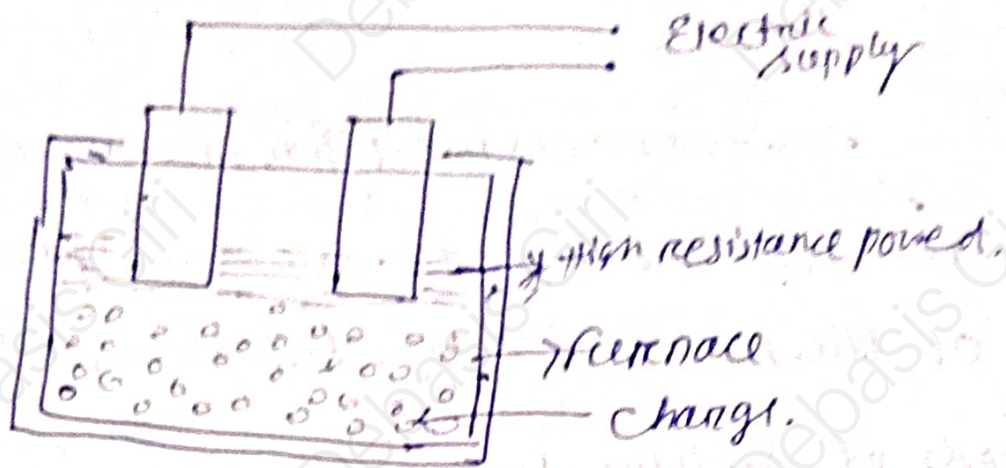 Electric
supply
High resistance powed.
furnace
Charge.
Debasis Giri